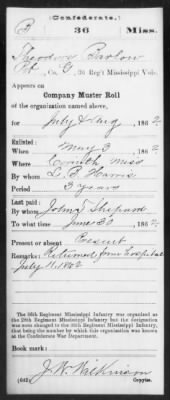 (Confederate.)
B 36 Miss.
Theodore Barlow
Pvt, Co. G, 36 Reg't Mississippi Vols.
Appears on
Company Muster Roll
of the organization named above,
for July & Aug, 1862.
Enlisted:
When May 3, 1862.
Where Corinth, Miss
By whom D. B. Harris
Period 3 years
Last paid:
By whom John J. Shepard
To what time June 30, 1862.
Present or absent Present
Remarks: Returned from hospital
July 11, 1862
The 36th Regiment Mississippi Infantry was organized as
the
Regiment Mississippi Infantry but the designation
was soon changed to the 36th Regiment Mississippi Infantry, that
being the number by which this organization was known at
the Confederate War Department.
Book mark:
J. W. Wilkinson
(642) Copyist.